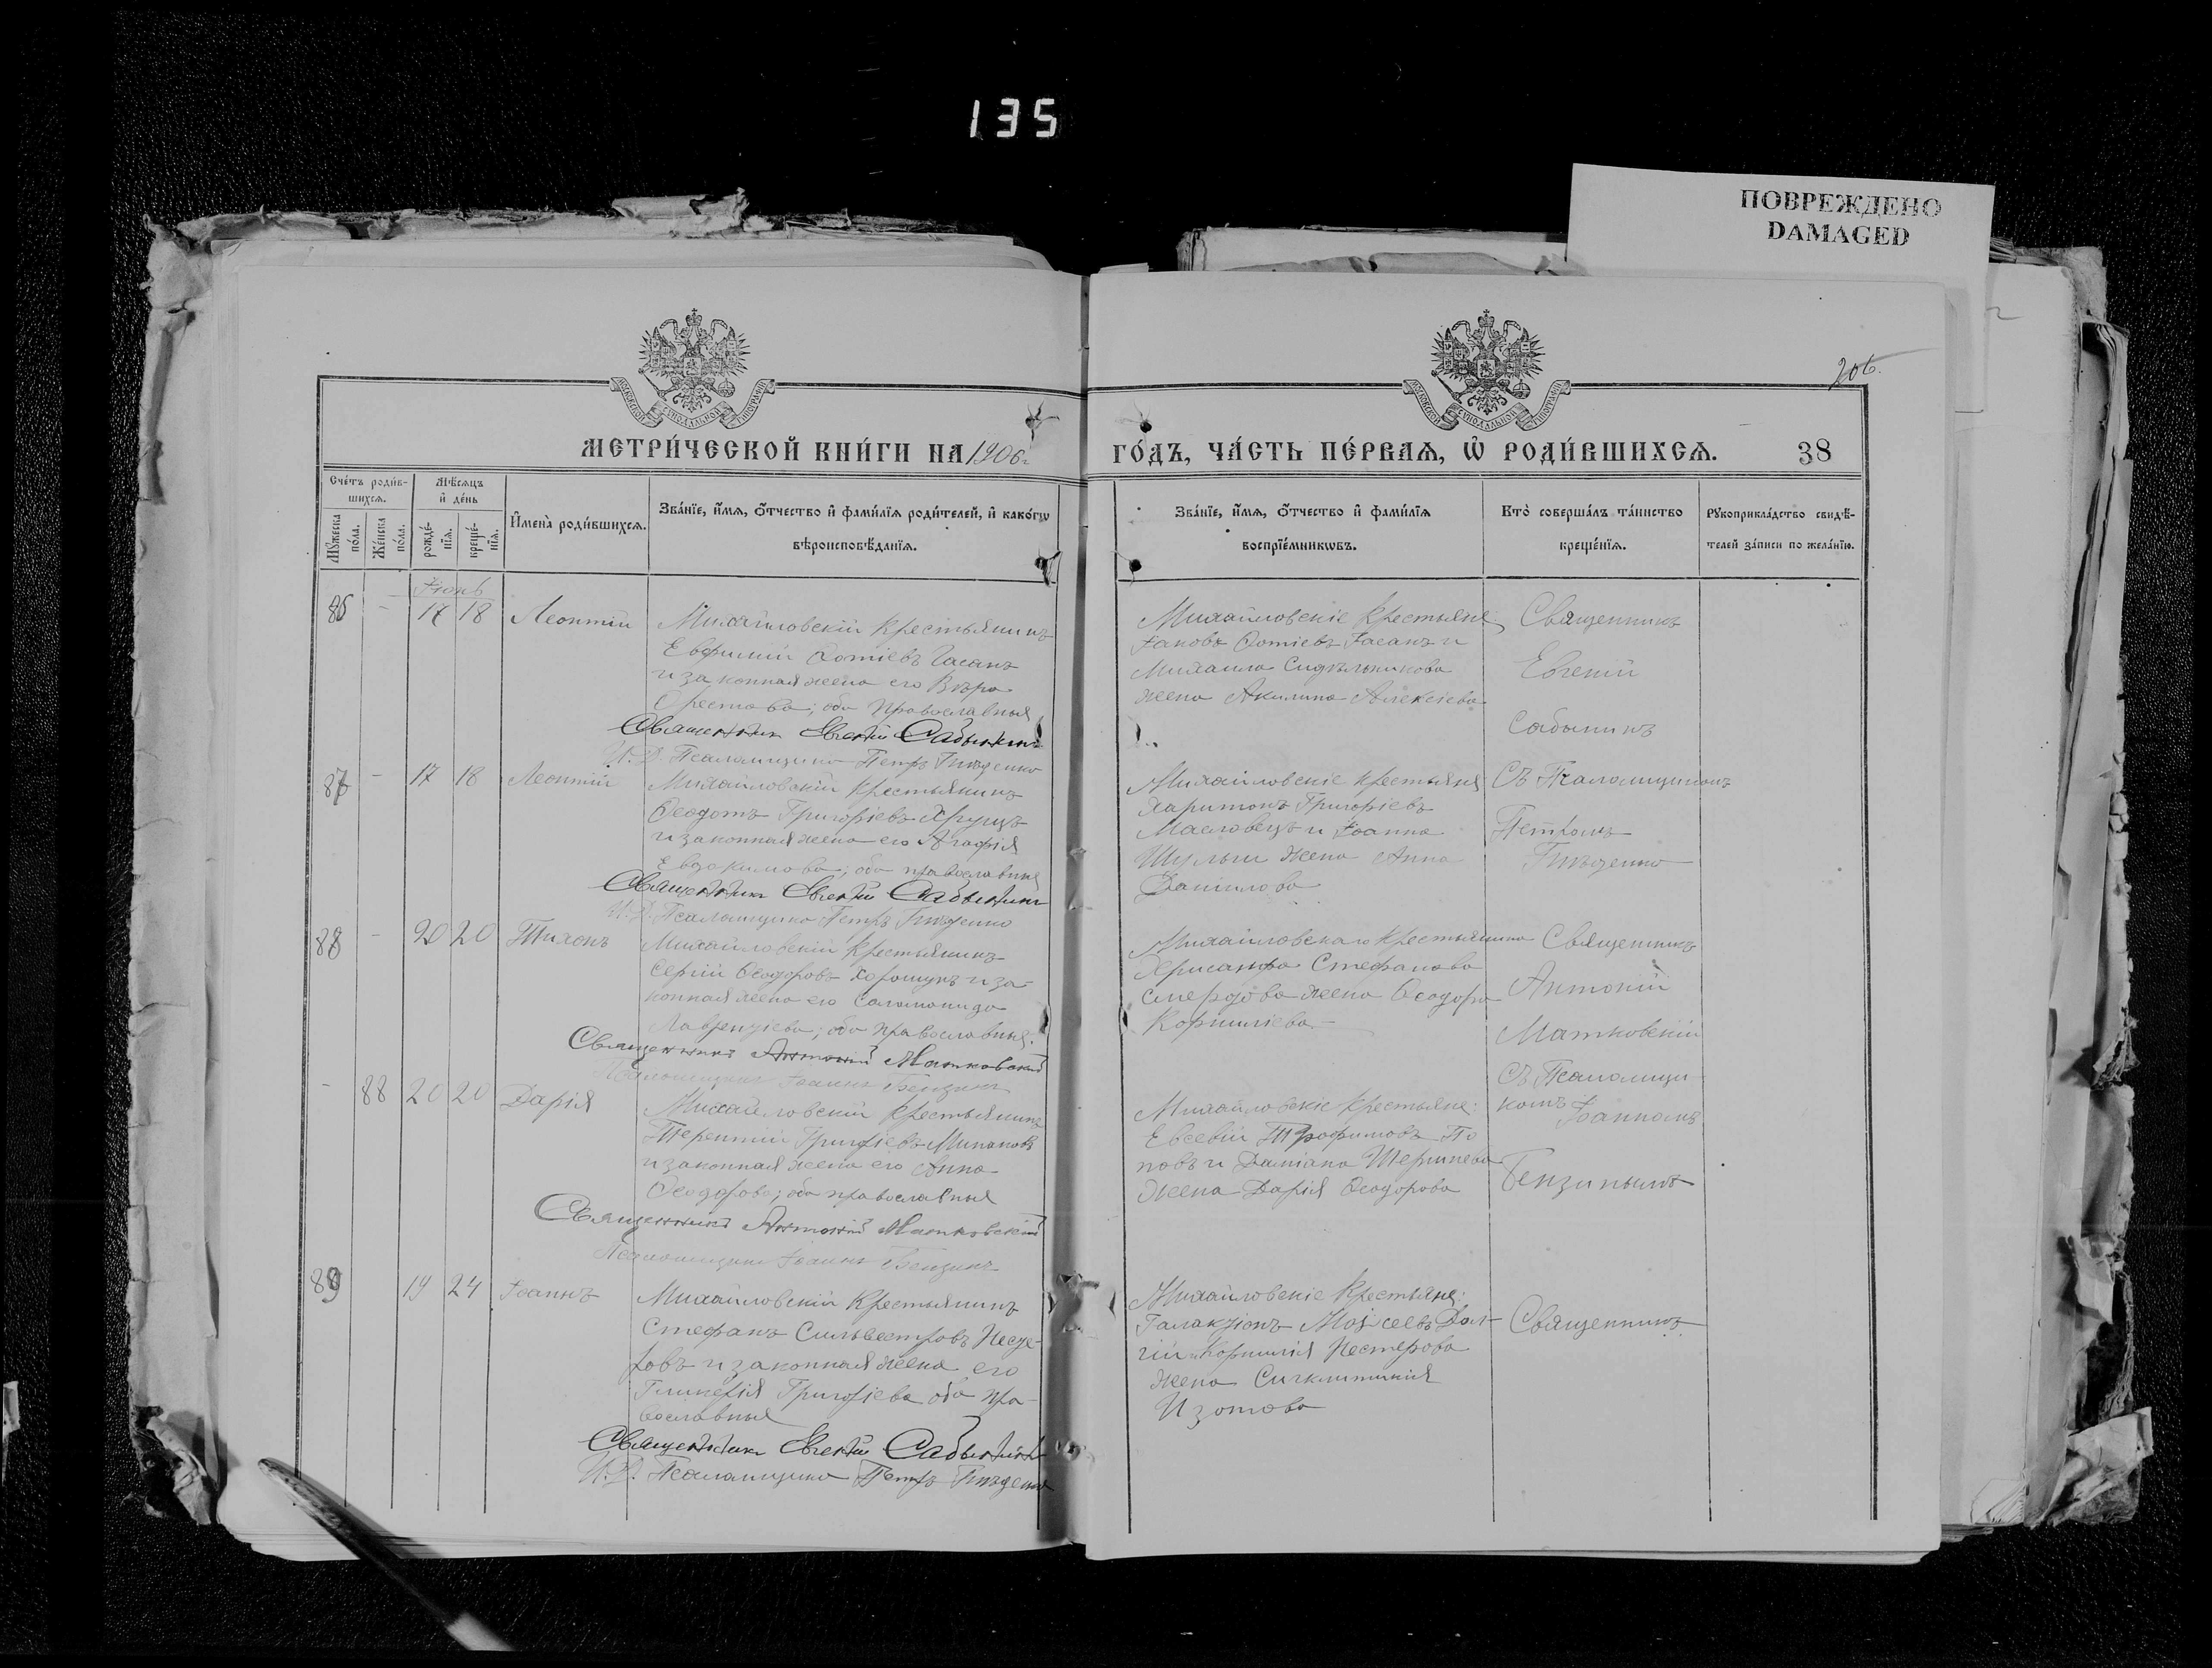 135
ПОВРЕЖДЕНО
DAMAGED
206.
МЕТРИ́ЧЕСКОЙ КНИ́ГИ НА 1906 г.
ГО́ДЪ, ЧА́СТЬ ПЕ́РВАѦ, Ѡ҆ РОДИ́ВШИХСѦ.
38
Сче́тъ роди́в-
шихсѧ.
Мꙋ́жеска по́ла.
Же́нска по́ла.
Мѣ́сѧцъ
и҆ де́нь
рожде́-
нїѧ.
креще́-
нїѧ.
И҆мена̀ роди́вшихсѧ.
Зва́нїе, и҆́мѧ, ѻ҆́тчество и҆ фами́лїѧ роди́телей, и҆ како́гѡ
вѣроисповѣ́данїѧ.
Зва́нїе, и҆́мѧ, ѻ҆́тчество и҆ фами́лїѧ
воспрїе́мникѡвъ.
Кто̀ соверша́лъ та́инство
креще́нїѧ.
Рꙋкоприкла́дство свидѣ́-
телей за́писи по жела́нїю.
Іюнь
86 - 17 18 Леонтій
Михайловскій крестьянинъ
Евфимій Фотіевъ Гасанъ
и законная жена его Вѣра
Орестова; оба православныя
Священникъ Евгеній Сабынинъ
И. Д. Псаломщика Петръ Гнѣденко
Михайловскіе крестьяне:
Іаковъ Фотіевъ Гасанъ и
Михаила Сидѣльникова
жена Акилина Алексіева
Священникъ
Евгеній
Сабынинъ
87 - 17 18 Леонтій
Михайловскій крестьянинъ
Ѳеодотъ Григоріевъ
и законная жена его Агафія
Евдокимова; оба православныя
Священникъ Евгеній Сабынинъ
И. Д. Псаломщика Петръ Гнѣденко
Михайловскіе крестьяня
Харитонъ Григоріевъ
Масловецъ и Іоанна
Шульги жена Анна
Даніилова
Съ Псаломщикомъ
Петромъ
Гнѣденко
88 - 20 20 Тихонъ
Михайловскій крестьянинъ
Сергій Ѳеодоровъ Хорошунъ и за-
конная жена его Саломонида
Лаврентіева; оба православныя.
Священникъ Антоній Матковскій
Псаломщикъ Іоаннъ Бензинъ
Михайловскаго крестьянина
Хрисанфа Стефанова
Смердова жена Ѳеодора
Корниліева.
Священникъ
Антоній
Матковскій
- 88 20 20 Дарія
Михайловскій крестьянинъ
Терентій Григоріевъ
и законная жена его Анна
Ѳеодорова; оба православныя
Священникъ Антоній Матковскій
Псаломщикъ Іоаннъ Бензинъ
Михайловскіе крестьяне:
Евсевій Трофимовъ По
повъ и Даміана
жена Дарія Ѳеодорова
Съ Псаломщи-
комъ Іоанномъ
Бензинымъ
89 19 24 Іоаннъ
Михайловскій крестьянинъ
Стефанъ Сильвестровъ
и законная жена его
Гликерія Григоріева оба пра-
вославныя
Священникъ Евгеній Сабынинъ
И. Д. Псаломщика Петръ Гнѣденко
Михайловскіе крестьяне:
Галактіонъ Моѵсеевъ Дол-
гій и Корнилія Нестерова
жена Синклитикія
Изотова
Священникъ